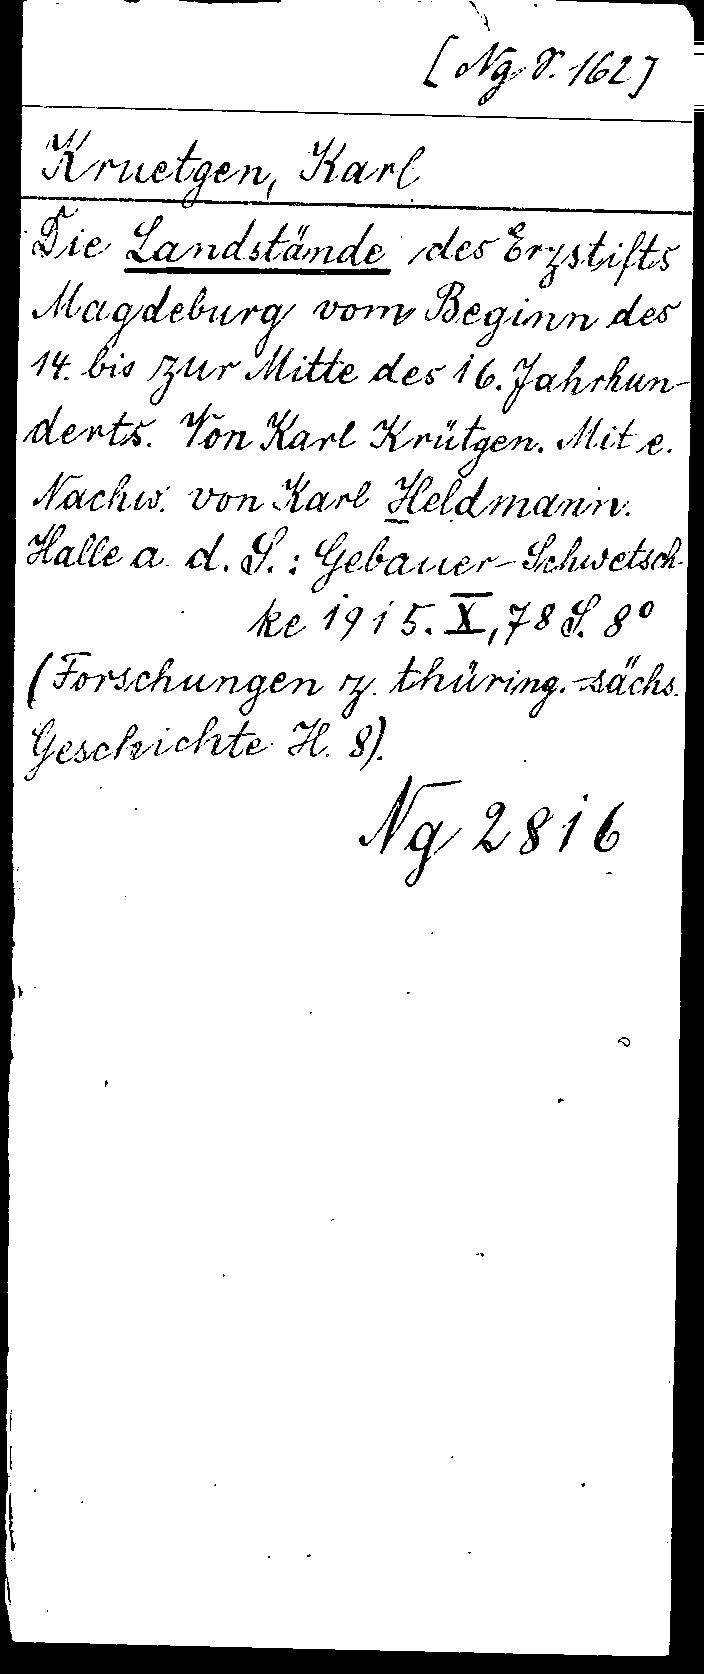 [Ng S. 162]
Kruetgen, Karl
Die Landstände des Erzstifts
Magdeburg vom Beginn des
14. bis zur Mitte des 16. Jahrhun-
derts. Von Karl Krütgen. Mit e.
Nachw. von Karl Heldmann.
Halle a. d. S.: Gebauer-Schwetsch-
ke 1915. X, 78 S. 8°
(Forschungen z. thüring.-sächs.
Geschichte H. 8).
Ng 2816